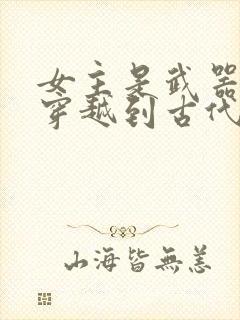 女主是武器
穿越到古代
山海皆無恙